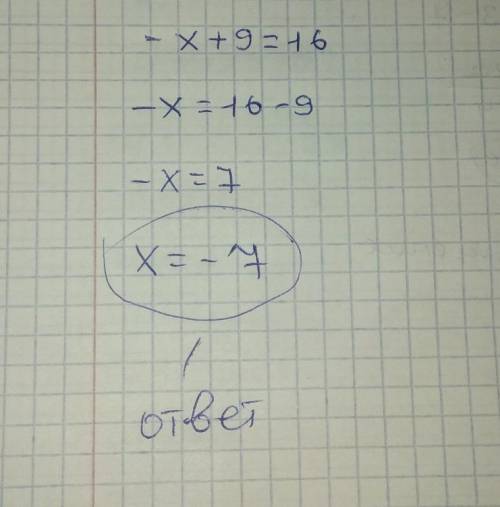 - x + 9 = 16
- x = 16 - 9
- x = 7
x = - 7
ответ